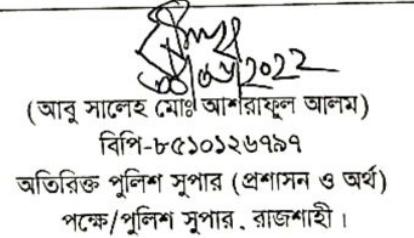 (আবু সালেহ মোঃ আশরাফুল আলম)
বিপি-৮৫১০১২৬৭৯৭
অতিরিক্ত পুলিশ সুপার (প্রশাসন ও অর্থ)
পক্ষে/পুলিশ সুপার, রাজশাহী।